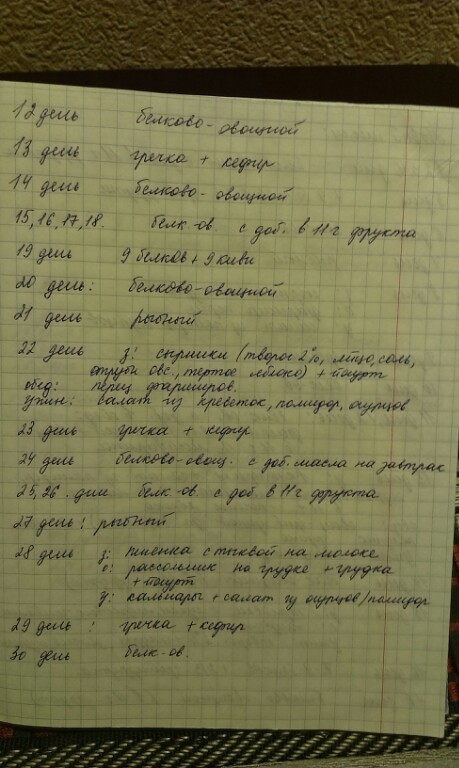 12 день белково-овощной
13 день гречка + кефир
14 день белково-овощной
15,16,17,18. белк-ов. с доб. в 11 г фрукта
19 день 9 белков + 9 киви
20 день: белково-овощной
21 день рыбный
22 день з: сырники (творог 2%, яйцо, соль,
отруби овс., тертое яблоко) + йогурт
обед: перец фарширов.
ужин: салат из креветок, помидор, огурцов
23 день гречка + кефир
24 день белково-овощ. с доб. масла на завтрак
25,26. дни белк-ов. с доб в 11 г фрукта
27 день: рыбный
28 день з: пшенка с тыквой на молоке
о: рассольник на грудке + грудка
+ йогурт
у: кальмары + салат из огурцов/помидор
29 день : гречка + кефир
30 день белк-ов.